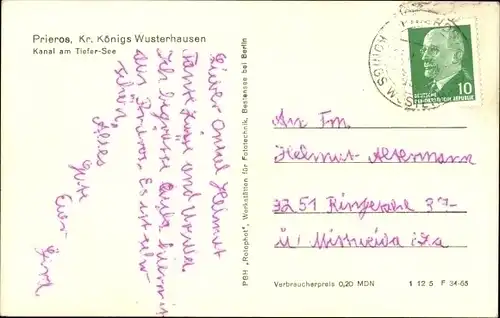 Prieros, Kr. Königs Wusterhausen
Kanal am Tiefer-See
Lieber Onkel Helmut
Tante und Ursula
Ich begrüsse Euch hiermit
aus Prieros. Es ist sehr
schön.
Alles
Gute
Euer Gerd
PBH „Rotophot", Werkstätten für Fototechnik, Bestensee bei Berlin
10
DEUTSCHE
DEMOKRATISCHE REPUBLIK
An Fm.
Helmut Altermann
3251 Ringethal 37
ü. Mittweida i/Sa
Verbraucherpreis 0,20 MDN
1 12 5 F 34-65